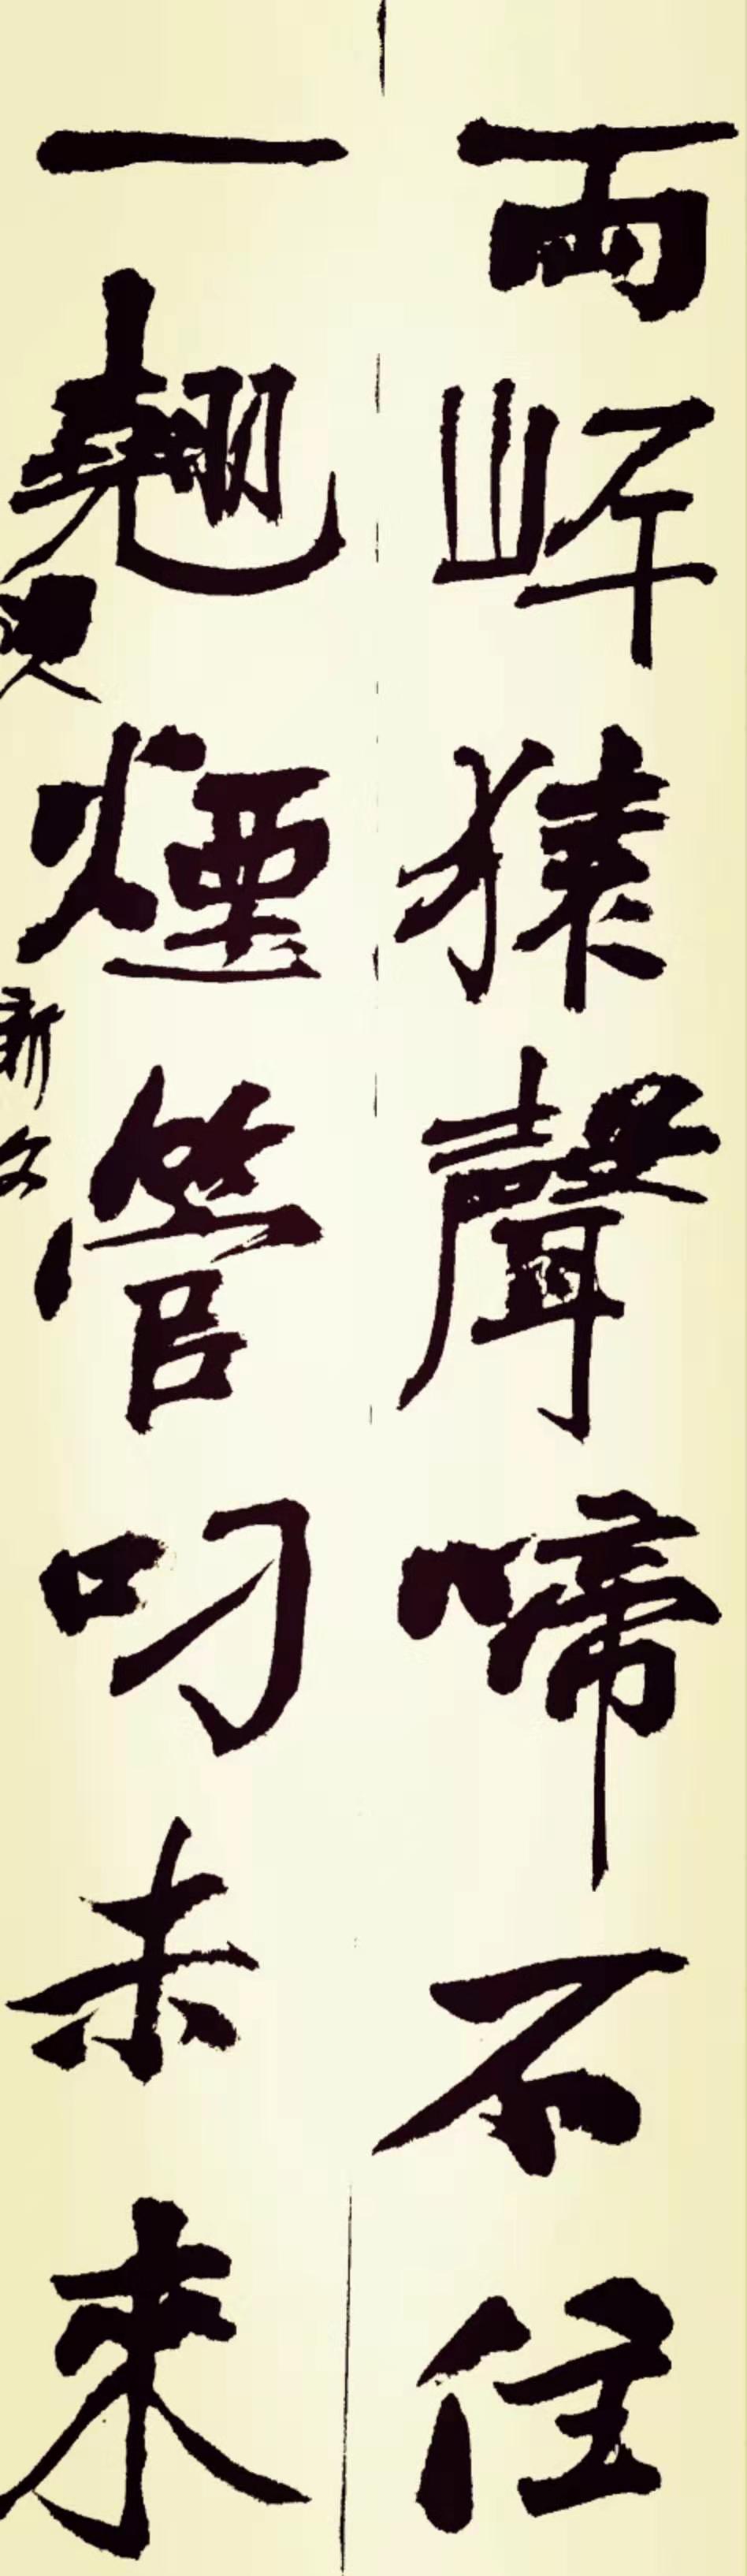 兩岸猿聲啼不住
一翹煙管叼未來